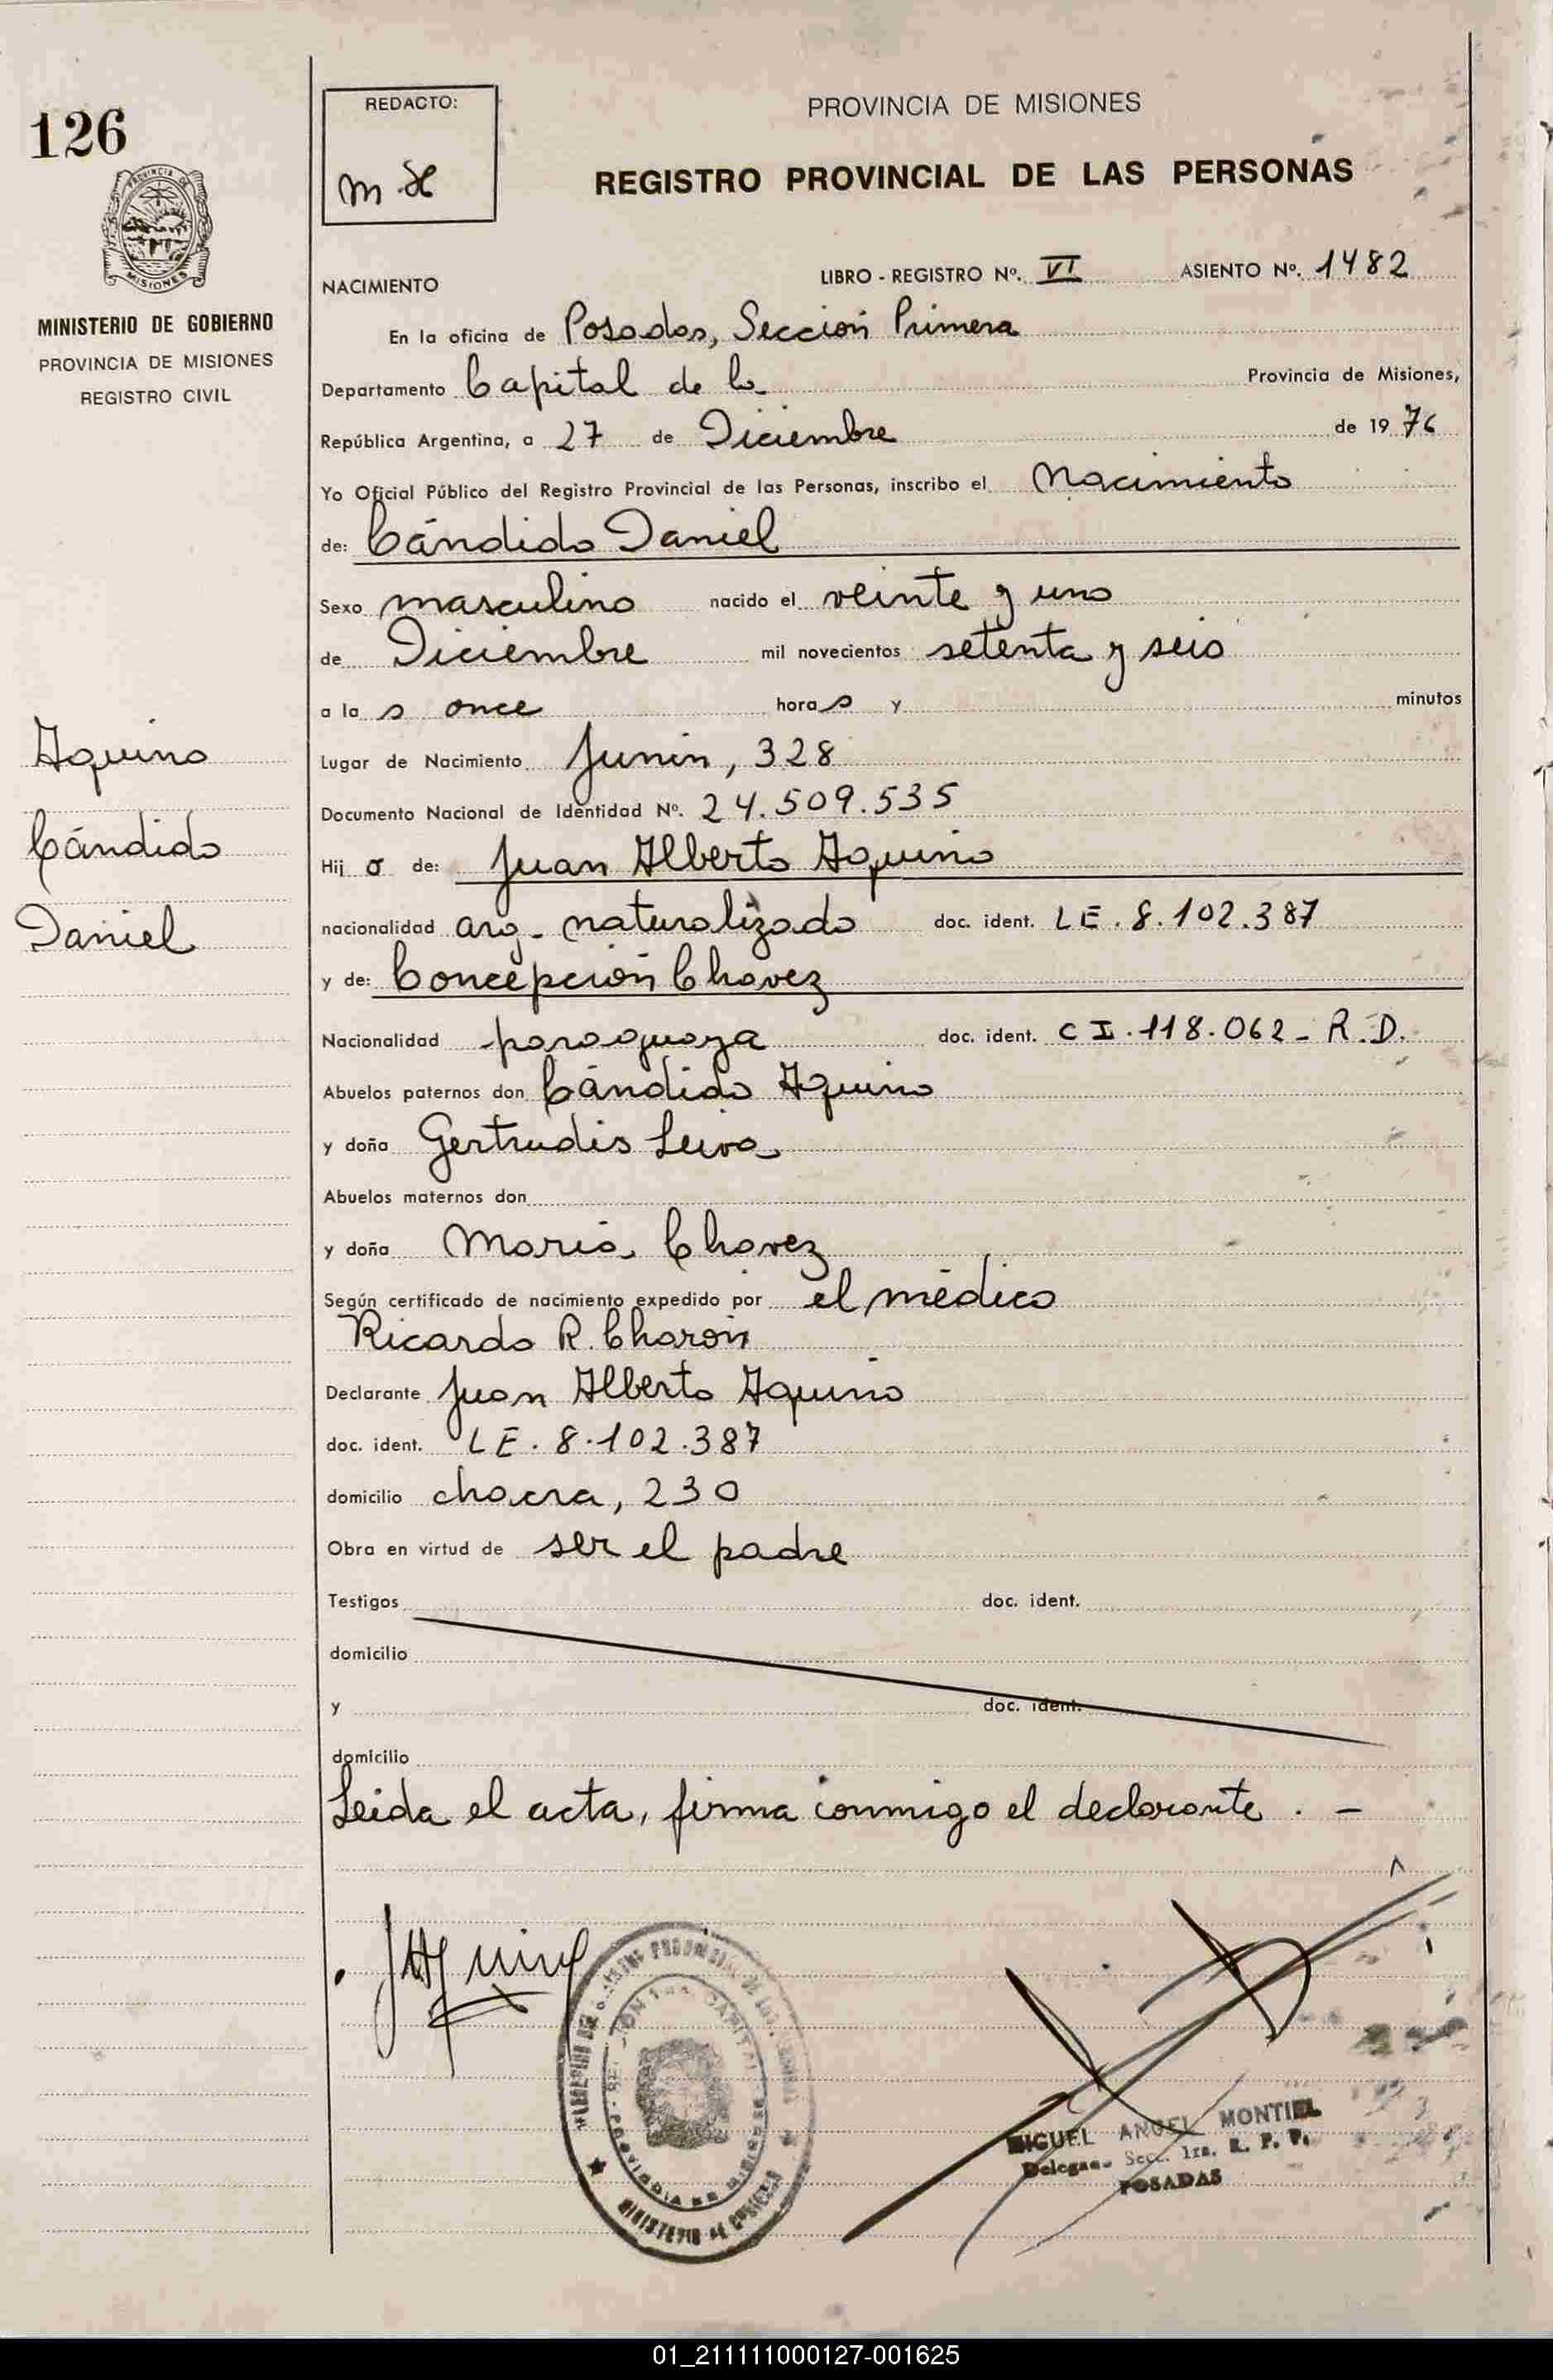 126
PROVINCIA DE MISIONES
MINISTERIO DE GOBIERNO
PROVINCIA DE MISIONES
REGISTRO CIVIL
Aquino
Cándido
Daniel
REDACTO:
PROVINCIA DE MISIONES
REGISTRO PROVINCIAL DE LAS PERSONAS
NACIMIENTO LIBRO - REGISTRO Nº. VI ASIENTO Nº. 1482
En la oficina de Posadas, Sección Primera
Departamento Capital de la Provincia de Misiones,
República Argentina, a 27 de Diciembre de 1976
Yo Oficial Público del Registro Provincial de las Personas, inscribo el Nacimiento
de: Cándido Daniel
Sexo masculino nacido el veinte y uno
de Diciembre mil novecientos setenta y seis
a las once horas y minutos
Lugar de Nacimiento Junín, 328
Documento Nacional de Identidad Nº. 24.509.535
Hijo de: Juan Alberto Aquino
nacionalidad arg. naturalizado doc. ident. LE. 8.102.387
y de: Concepción Chavez
Nacionalidad paraguaya doc. ident. CI.118.062- R.D.
Abuelos paternos don Cándido Aquino
y doña Gertrudis Leiva
Abuelos maternos don
y doña María Chavez
Según certificado de nacimiento expedido por el médico
Ricardo R. Charón
Declarante Juan Alberto Aquino
doc. ident. LE. 8.102.387
domicilio chacra, 230
Obra en virtud de ser el padre
Testigos doc. ident.
domicilio
y doc. ident.
domicilio
Leida el acta, firma conmigo el declarante. -
JAquino
MIGUEL ANGEL MONTIEL
Secc. 1ra. R. P. P.
POSADAS
01_211111000127-001625